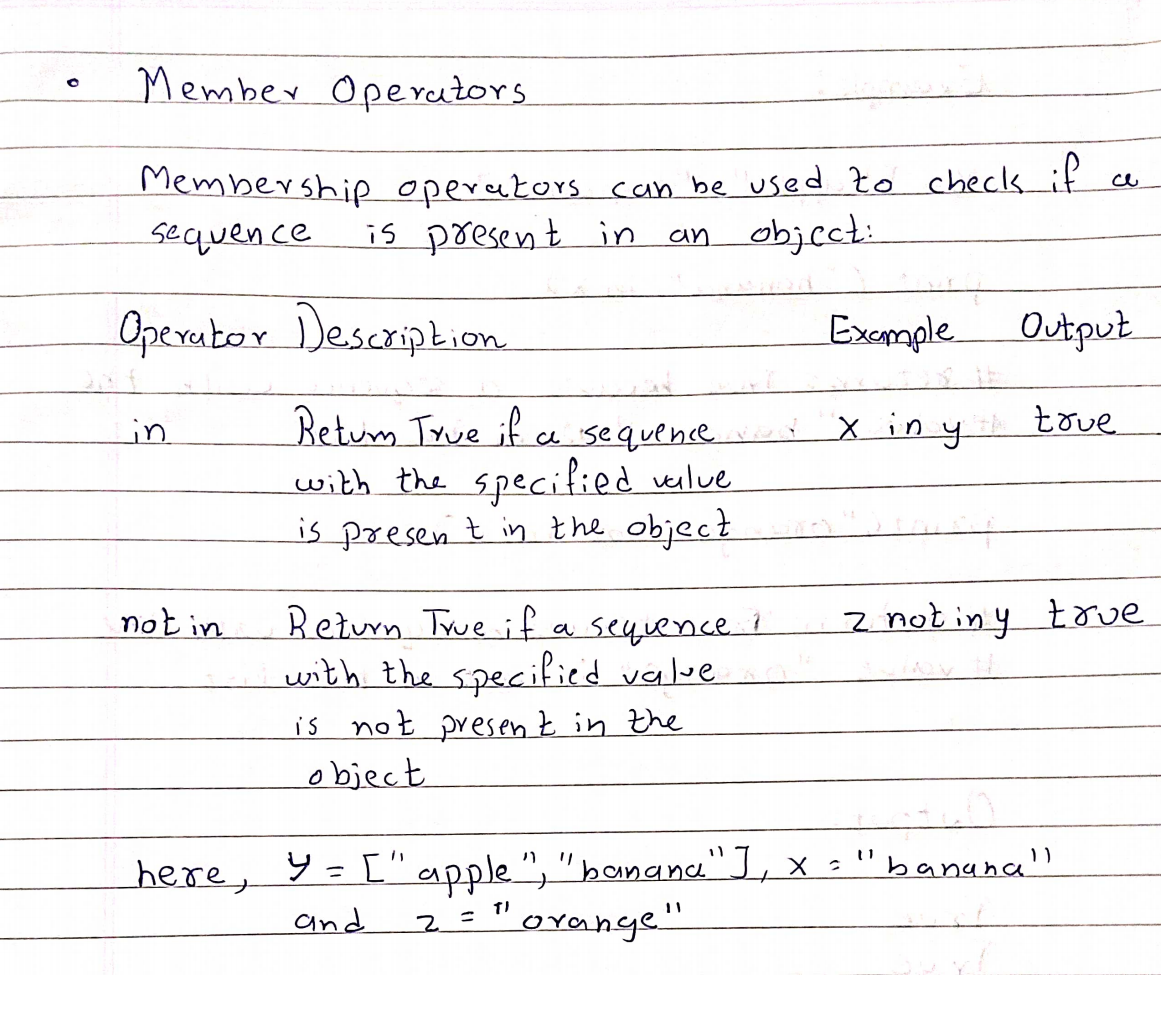 • Member Operators
Membership operators can be used to check if a
sequence is present in an object:
Operator Description Example Output
in Return True if a sequence x in y true
with the specified value
is present in the object
not in Return True if a sequence z not in y true
with the specified value
is not present in the
object
here, y = ["apple", "banana"], x = "banana"
and z = "orange"